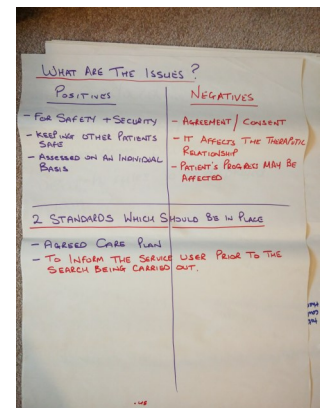 WHAT ARE THE ISSUES?
POSITIVES
- FOR SAFETY + SECURITY
- KEEPING OTHER PATIENTS
SAFE
- ASSESSED ON AN INDIVIDUAL
BASIS
NEGATIVES
- AGREEMENT / CONSENT
- IT AFFECTS THE THERAPUTIC
RELATIONSHIP
- PATIENT'S PROGRESS MAY BE
AFFECTED
2 STANDARDS WHICH SHOULD BE IN PLACE
- AGREED CARE PLAN
- TO INFORM THE SERVICE USER PRIOR TO THE
SEARCH BEING CARRIED OUT.